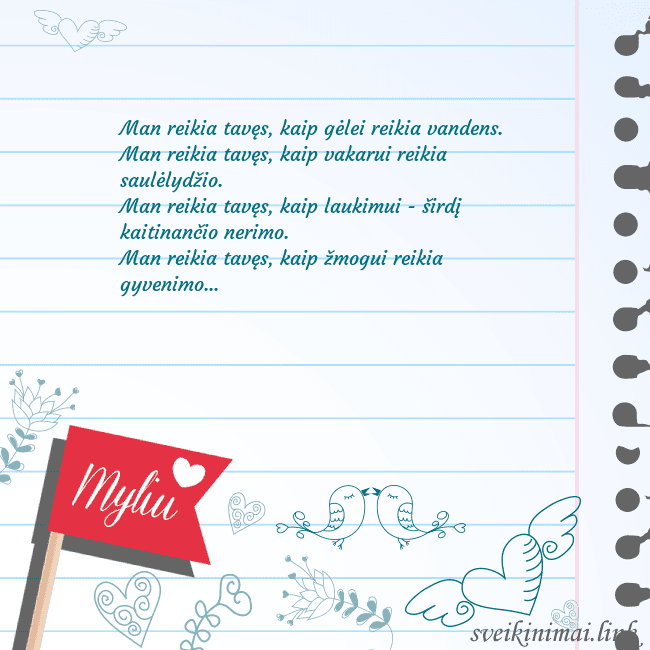 Man reikia tavęs, kaip gėlei reikia vandens.
Man reikia tavęs, kaip vakarui reikia
saulėlydžio.
Man reikia tavęs, kaip laukimui - širdį
kaitinančio nerimo.
Man reikia tavęs, kaip žmogui reikia
gyvenimo...
Myliu
sveikinimai.link